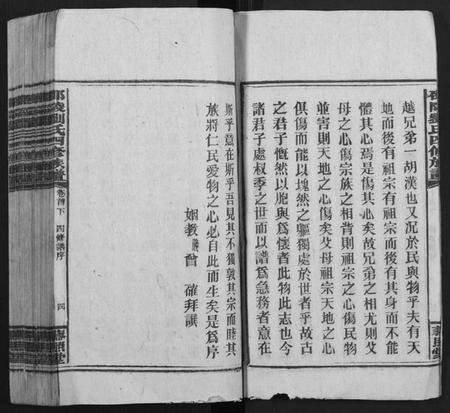 越兄弟一胡漢也又況於民與物乎夫有天
地而後有祖宗有祖宗而後有其身而不能
體其心焉是傷其心矣故兄弟之相尤則父
母之心傷宗族之相背則祖宗之心傷民物
並害則天地之心傷矣父母祖宗天地之心
俱傷而能以塊然之軀獨處於世者乎故古
之君子慨然以胞與為懷者此物此志也今
諸君子處叔季之世而以譜為急務者意在
斯乎意在斯乎吾見其不獨敦其宗而睦其
族將仁民愛物之心必自此而生矣是為序
姻教 曾 確拜譔
邵陵劉氏四修族譜
卷首下
四修譜序
四